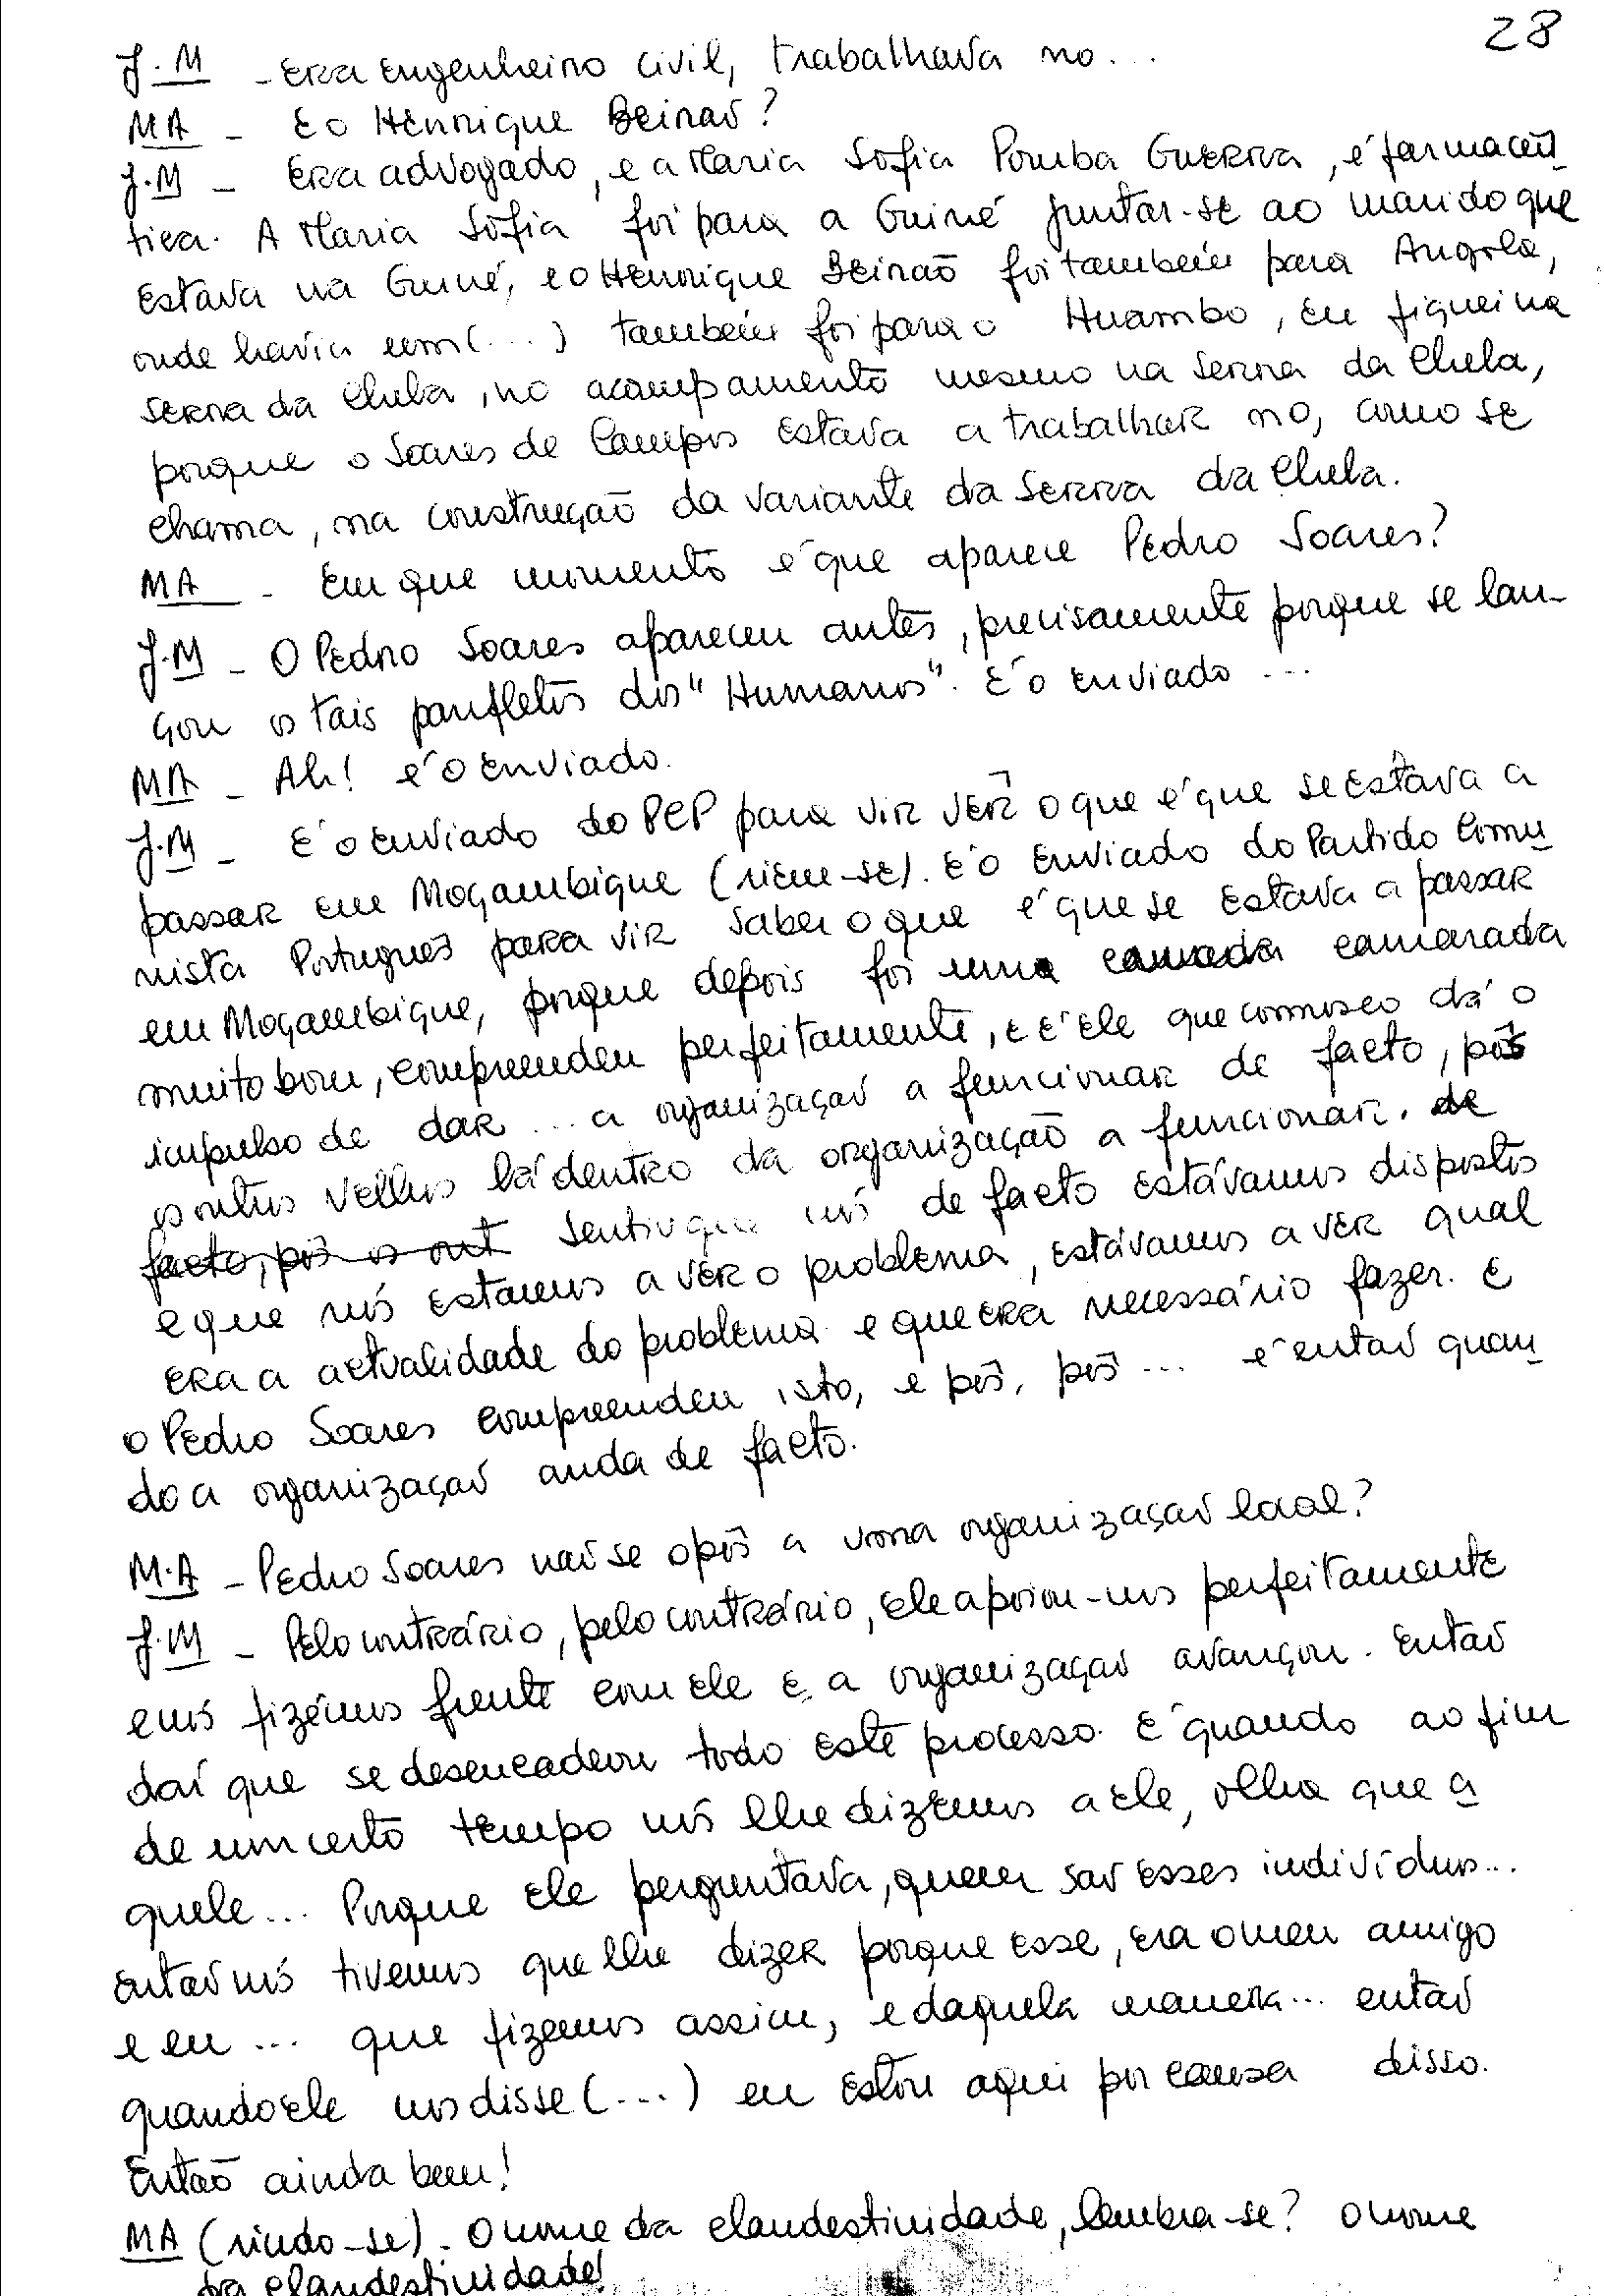 28
J.M - Era engenheiro civil, trabalhava no...
MA - E o Henrique Beirão?
J.M - Era advogado, e a Maria Sofia Pomba Guerra, é farmacêu
tica. A Maria Sofia foi para a Guiné juntar-se ao marido que
estava na Guiné, e o Henrique Beirão foi também para Angola,
onde havia um (...) também foi para o Huambo, eu fiquei na
serra da Chela, no acampamento mesmo na serra da Chela,
porque o Soares de Campos estava a trabalhar no, como se
chama, na construção da variante da Serra da Chela.
MA - Em que momento é que aparece Pedro Soares?
J.M - O Pedro Soares apareceu antes, precisamente porque se lan-
çou os tais panfletos dos "Humanos". É o enviado ...
MA - Ah! é o enviado.
J.M - É o enviado do PCP para vir ver o que é que se estava a
passar em Moçambique (riem-se). É o enviado do Partido Comu
nista Português para vir saber o que é que se estava a passar
em Moçambique, porque depois foi uma camada camarada
muito bom, compreendeu perfeitamente, e é ele que connosco dá o
impulso de dar ... a organização a funcionar de facto, pôs
os outros velhos lá dentro da organização a funcionar. de
facto, pôs os out sentiu que nós de facto estávamos dispostos
e que nós estamos a ver o problema, estávamos a ver qual
era a actualidade do problema e que era necessário fazer. E
o Pedro Soares compreendeu isto, e pôs, pôs ... é então quan
do a organização anda de facto.
M.A - Pedro Soares não se opôs a uma organização local?
J.M - Pelo contrário, pelo contrário, ele apoiou-nos perfeitamente
e nós fizémos frente com ele e a organização avançou. Então
daí que se desencadeou todo este processo. É quando ao fim
de um certo tempo nós lhe dizemos a ele, olha que a
quele... Porque ele perguntava, quem são esses indivíduos...
então nós tivemos que lhe dizer porque esse, era o meu amigo
e eu ... que fizemos assim, e daquela maneira... então
quando ele nos disse (...) eu estou aqui por causa disso.
Então ainda bem!
MA (rindo-se) - O nome da clandestinidade, lembra-se? O nome
da clandestinidade!